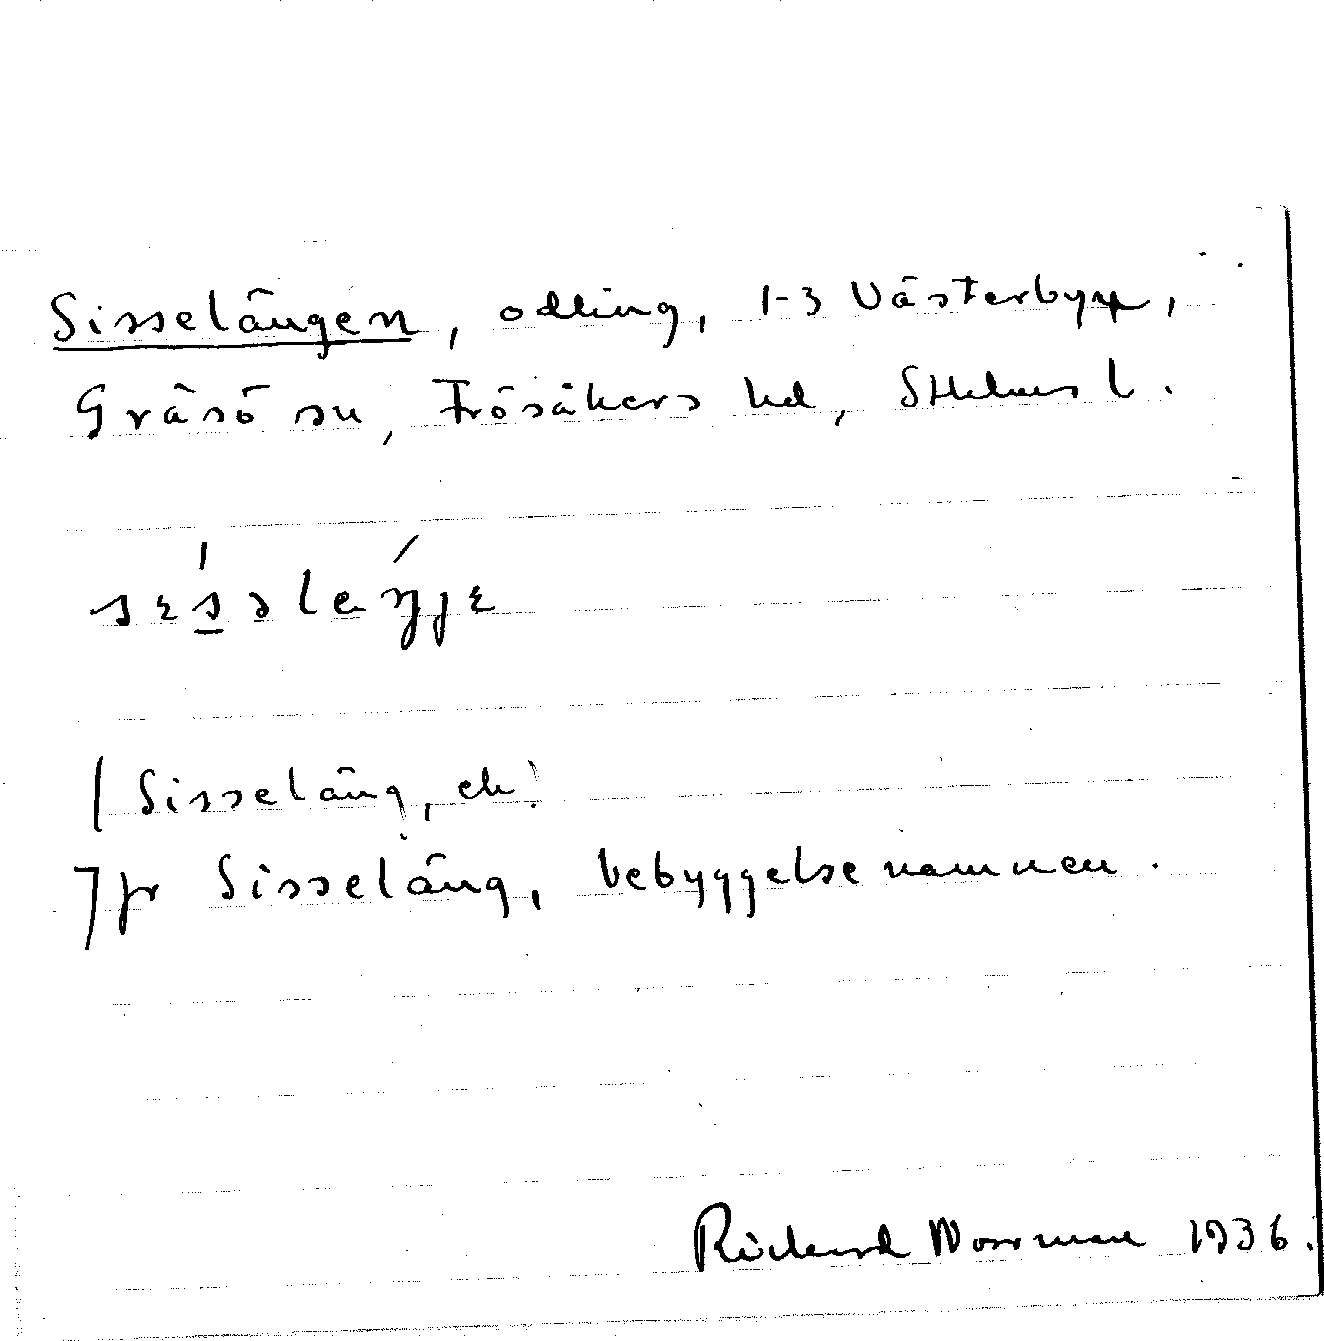 Sisselängen, odling, 1-3 Västerbyn,
Gräsö sn, Frösåkers hd, Sthlms l.
(Sisseläng, ek)
Jfr Sisseläng, bebyggelsenamnen.
Richard Norrman 1936.